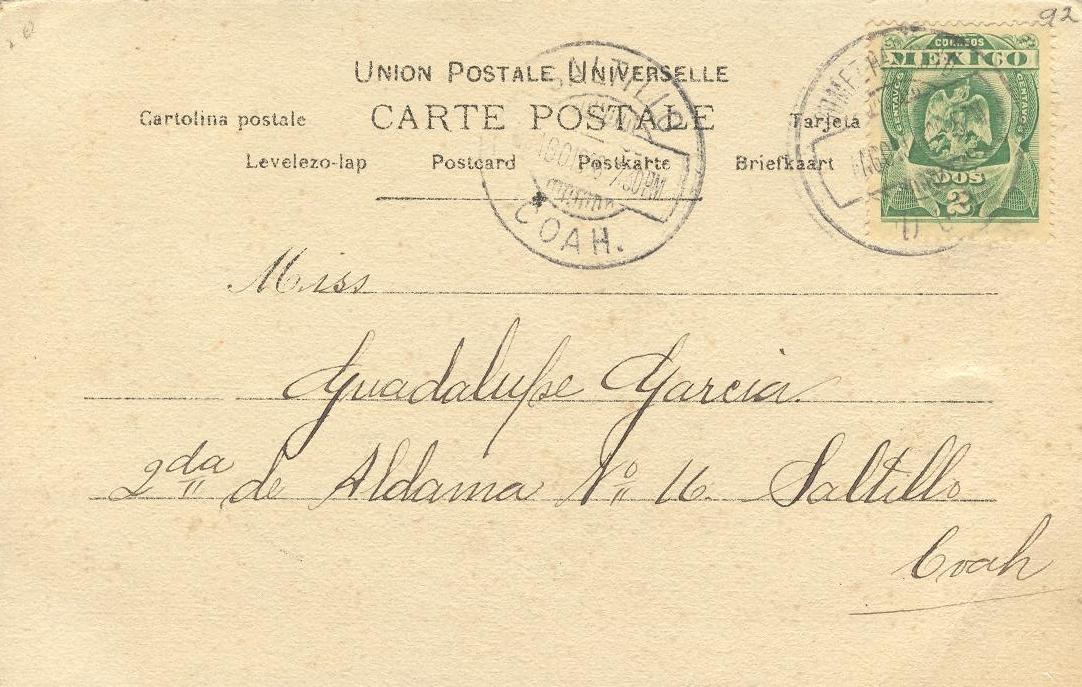 92
CORREOS
MEXICO
CENTAVOS CENTAVOS
DOS
2
UNION POSTALE UNIVERSELLE
CARTE POSTALE
Cartolina postale
Tarjeta
Levelezo-lap Postcard Postkarte Briefkaart
SALTILLO
7:30 PM
COAH.
Miss
Guadalupe Garcia.
2da de Aldama No. 16. Saltillo
Coah